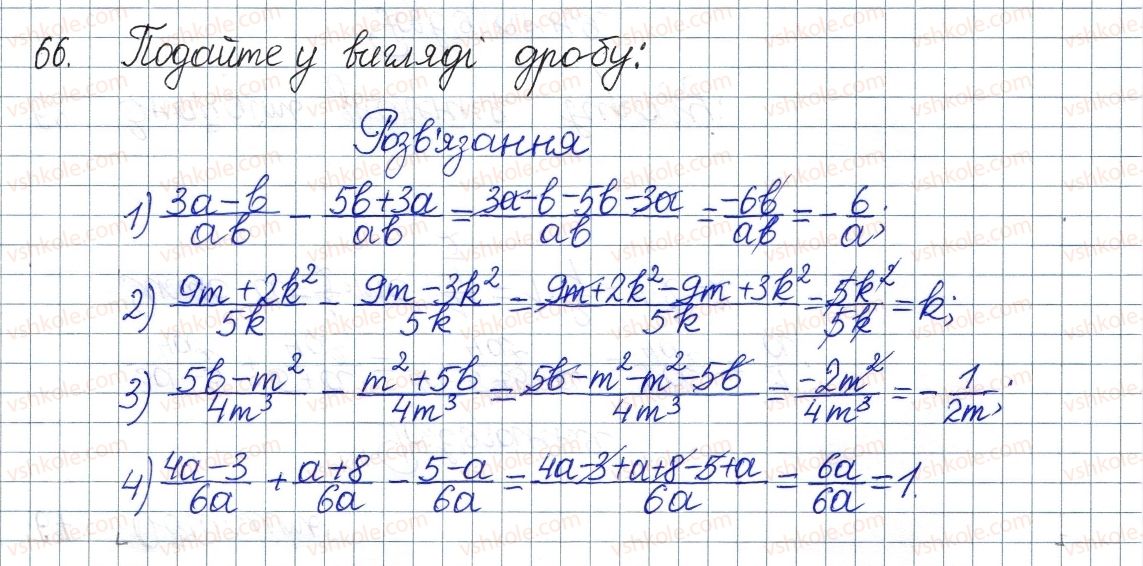 66. Подайте у вигляді дробу:
Розв'язання
1) (3a-b)/(ab) - (5b+3a)/(ab) = (3a-b-5b-3a)/(ab) = (-6b)/(ab) = -6/a;
2) (9m+2k²)/(5k) - (9m-3k²)/(5k) = (9m+2k²-9m+3k²)/(5k) = (5k²)/(5k) = k;
3) (5b-m²)/(4m³) - (m²+5b)/(4m³) = (5b-m²-m²-5b)/(4m³) = (-2m²)/(4m³) = -1/(2m);
4) (4a-3)/(6a) + (a+8)/(6a) - (5-a)/(6a) = (4a-3+a+8-5+a)/(6a) = (6a)/(6a) = 1.
vshkole.com